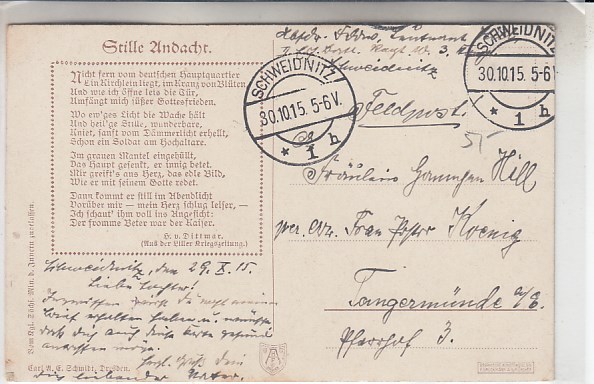 Stille Andacht.
Nicht fern vom deutschen Hauptquartier
Ein Kirchlein liegt, im Kranz von Blüten
Und wie ich öffne leis die Tür,
Umfängt mich süßer Gottesfrieden.
Wo ew'ges Licht die Wache hält
Und heil'ge Stille, wunderbare,
Kniet, sanft vom Dämmerlicht erhellt,
Schon ein Soldat am Hochaltare.
Im grauen Mantel eingehüllt,
Das Haupt gesenkt, er innig betet.
Mir greift's ans Herz, das edle Bild,
Wie er mit seinem Gotte redet.
Dann kommt er still im Abendlicht
Vorüber mir — mein Herz schlug leiser, —
Ich schaut' ihm voll ins Angesicht:
Der fromme Beter war der Kaiser.
H. v. Dittmar.
(Aus der Liller Kriegszeitung.)
Vom Kgl. Sächs. Min. d. Innern zugelassen.
Schweidnitz, den 29. X. 15.
Liebe Tochter!
Brief erhalten haben u.
daß Dich auch diese Karte gesund
Herzl. Gruß Dein
Dich liebender Vater.
Carl A. E. Schmidt, Dresden.
Leutnant
Schweidnitz
SCHWEIDNITZ
30.10.15. 5-6V.
* 1 h
SCHWEIDNITZ
30.10.15. 5-6V.
* 1 h
Feldpost!
Fräulein Hill
Frau Koenig
Tangermünde a/E.
Pfarrhof 3.